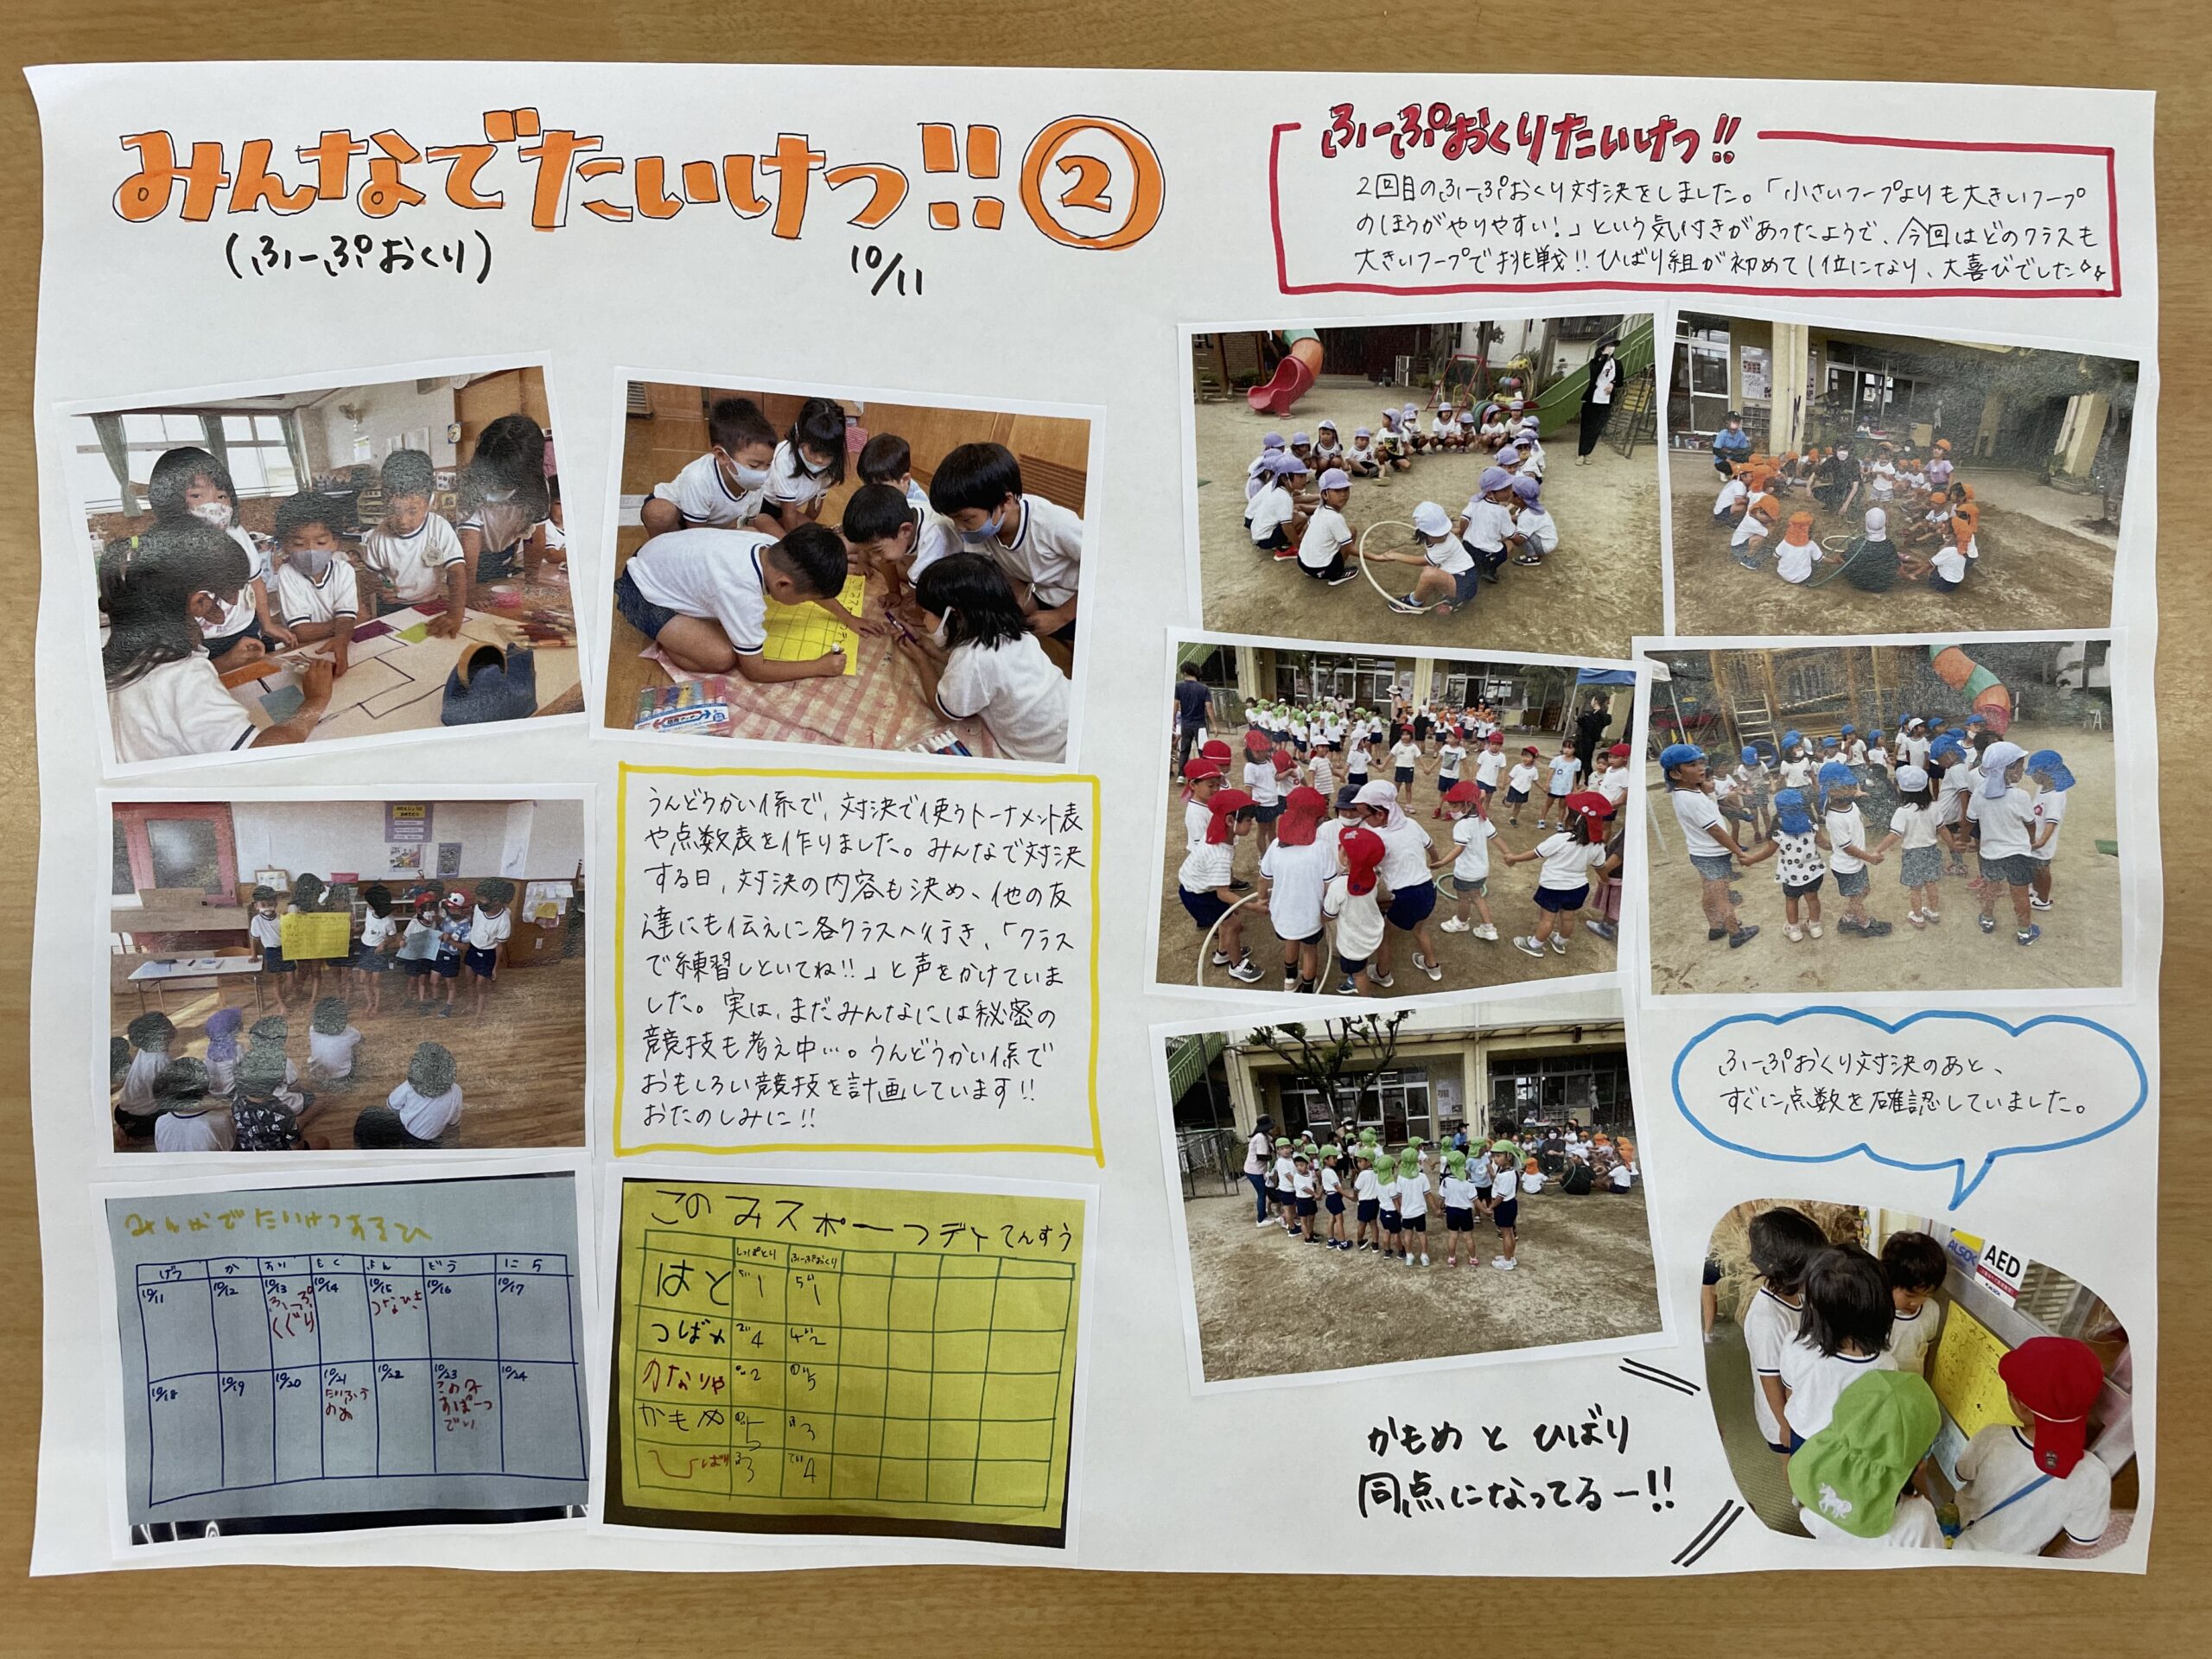 みんなでたいけつ!!②
(ふーぷおくり)
10/11
ふーぷおくりたいけつ!!
2回目のふーぷおくり対決をしました。「小さいフープよりも大きいフープ
のほうがやりやすい!」という気付きがあったようで、今回はどのクラスも
大きいフープで挑戦!!ひばり組が初めて1位になり、大喜びでした
うんどうかい係で、対決で使うトーナメント表
や点数表を作りました。みんなで対決
する日、対決の内容も決め、他の友
達にも伝えに各クラスへ行き、「クラス
で練習しといてね!!」と声をかけていま
した。実は、まだみんなには秘密の
競技も考え中…。うんどうかい係で
おもしろい競技を計画しています!!
おたのしみに!!
みんなでたいけつするひ
げつ か すい もく きん どう にち
10/11 10/12 10/13 10/14 10/15 10/16 10/17
ふーぷ つなひき
くぐり
10/18 10/19 10/20 10/21 10/22 10/23 10/24
このみ
すぽーつ
でい
このみスポーツデイてんすう
しっぽとり ふーぷおくり
はと 1 1
つばめ 4 2
かなりや 2 5
かもめ 5 3
ひばり 3 4
ふーぷおくり対決のあと、
すぐに点数を確認していました。
ALSOK
AED
かもめ と ひばり
同点になってるー!!